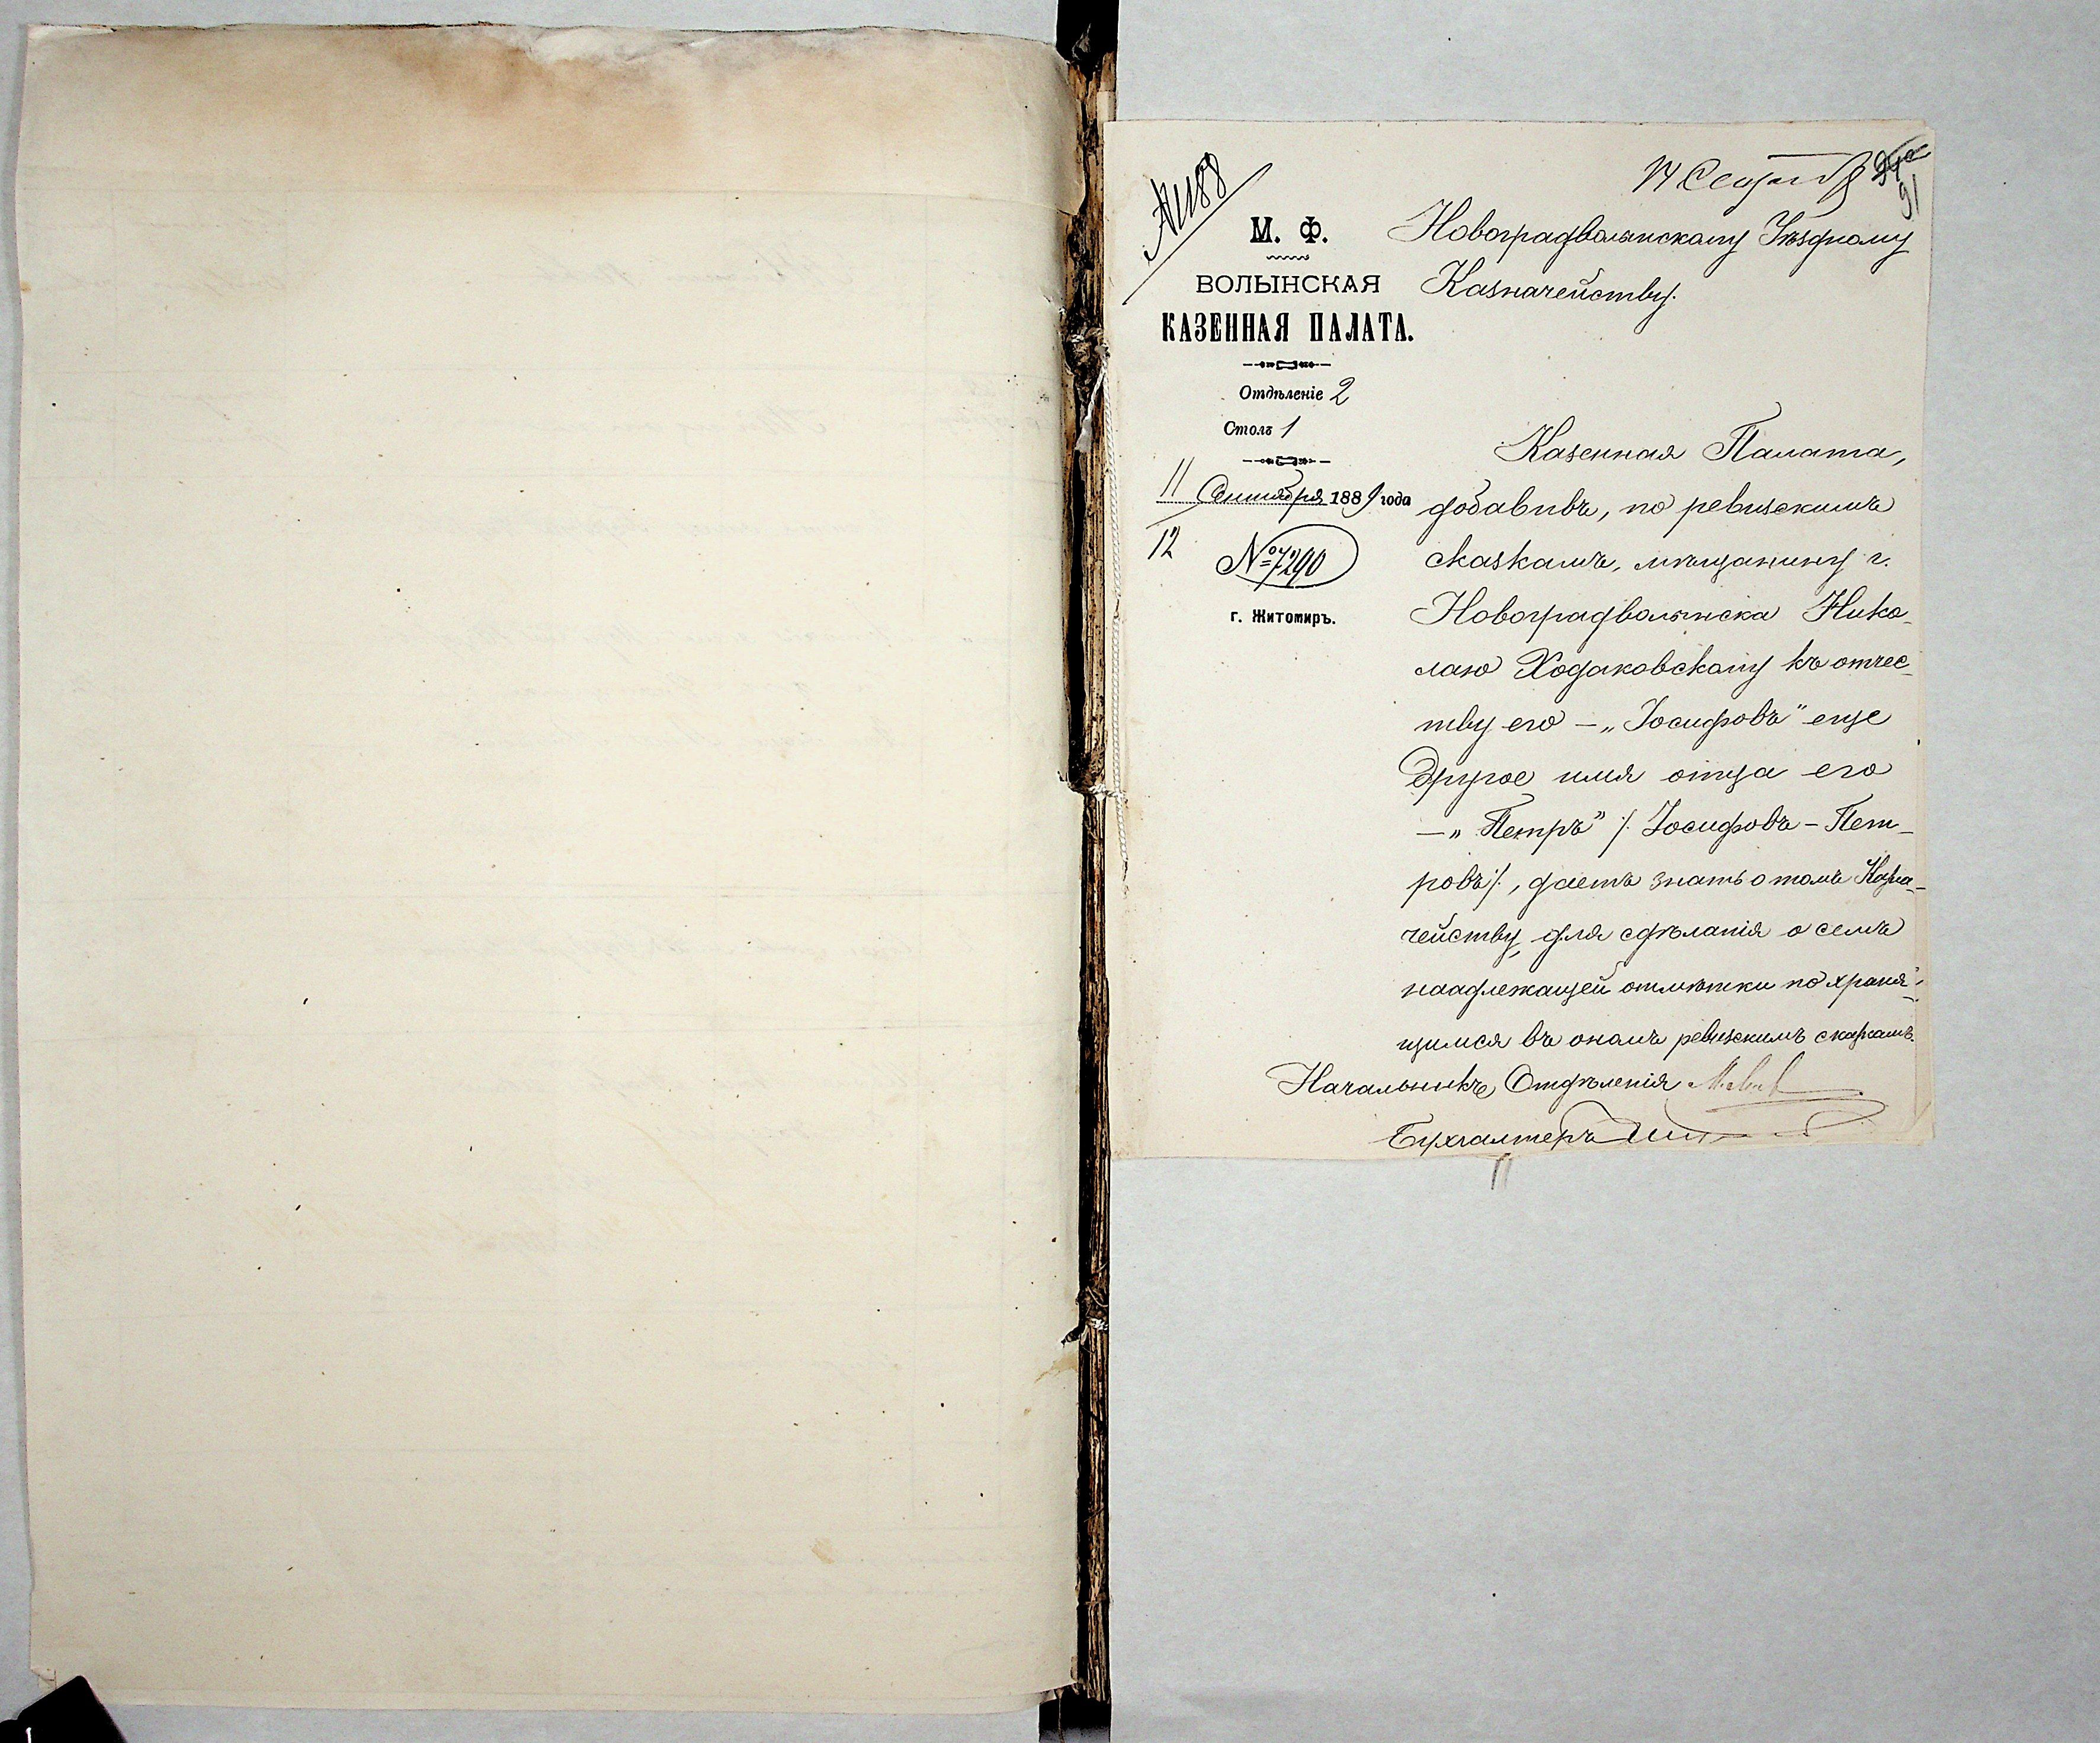 14 Сентября
91
№ 1188
М. Ф.
ВОЛЫНСКАЯ
КАЗЕННАЯ ПАЛАТА.
Отдѣленіе 2
Столъ 1
11 Сентября 1889 года
12
№ 7290
г. Житомиръ.
Новоградволынскому Уѣздному
Казначейству.
Казенная Палата,
добавивъ, по ревизскимъ
сказкамъ, мѣщанину г.
Новоградволынска Нико-
лаю Ходаковскому къ отчес-
тву его – „Іосифовъ" еще
другое имя отца его
– „Петръ" /. Іосифовъ – Пет-
ровъ /., даетъ знать о томъ Казна-
чейству, для сдѣланія о семъ
наадлежащей отмѣтки по храня-
щимся въ ономъ ревизскимъ сказкамъ.
Начальникъ Отдѣленія
Бухгалтеръ